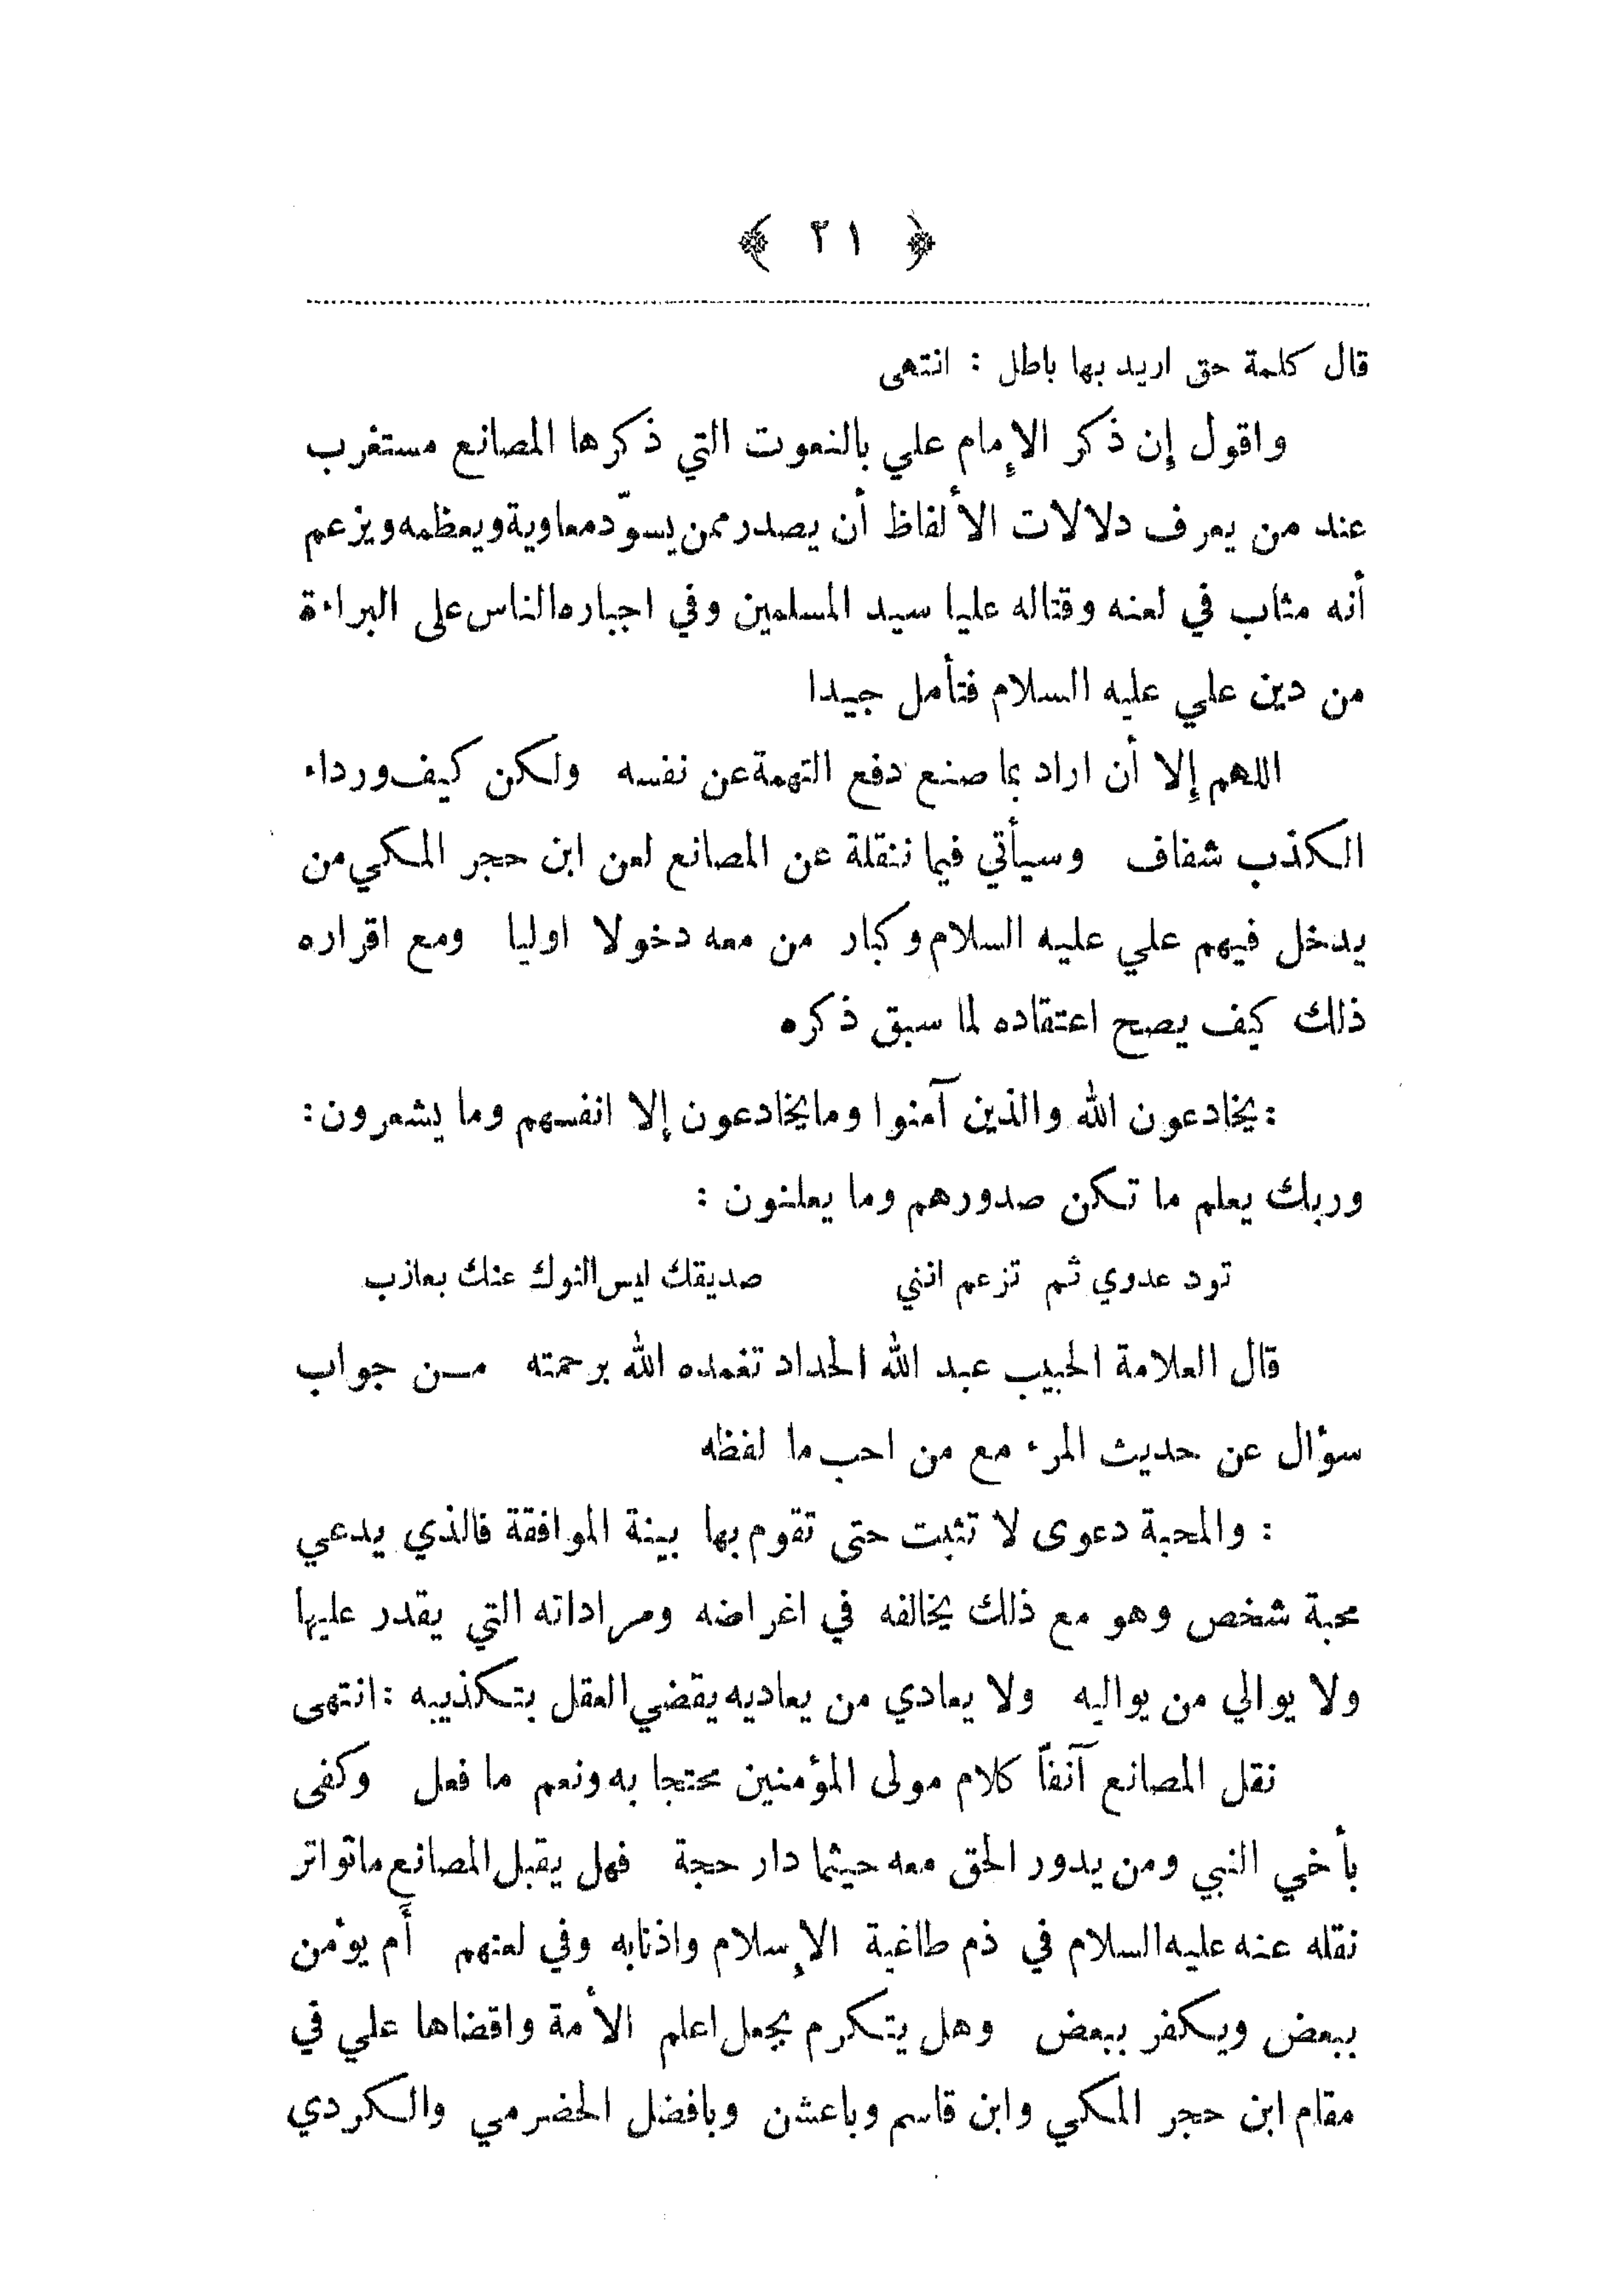 ﴿ ٢١ ﴾
قال كلمة حق اريد بها باطل : انتهى
واقول إن ذكر الإمام علي بالنعوت التي ذكرها المصانع مستغرب
عند من يعرف دلالات الألفاظ أن يصدر ممن يسوّد معاوية ويعظمه ويزعم
أنه مثاب في لعنه وقتاله عليا سيد المسلمين وفي اجباره الناس على البراءة
من دين علي عليه السلام فتأمل جيدا
اللهم إلا أن اراد بما صنع دفع التهمة عن نفسه ولكن كيف ورداء
الكذب شفاف وسيأتي فيما ننقلة عن المصانع لعن ابن حجر المكي من
يدخل فيهم علي عليه السلام وكبار من معه دخولا اوليا ومع اقراره
ذلك كيف يصح اعتقاده لما سبق ذكره
: يخادعون الله والذين آمنوا وما يخادعون إلا انفسهم وما يشعرون :
وربك يعلم ما تكن صدورهم وما يعلنون :
تود عدوي ثم تزعم انني صديقك ليس النوك عنك بعازب
قال العلامة الحبيب عبد الله الحداد تغمده الله برحمته من جواب
سؤال عن حديث المرء مع من احب ما لفظه
: والمحبة دعوى لا تثبت حتى تقوم بها بينة الموافقة فالذي يدعي
محبة شخص وهو مع ذلك يخالفه في اغراضه ومراداته التي يقدر عليها
ولا يوالي من يواليه ولا يعادي من يعاديه يقضي العقل بتكذيبه : انتهى
نقل المصانع آنفاً كلام مولى المؤمنين محتجا به ونعم ما فعل وكفى
بأخي النبي ومن يدور الحق معه حيثما دار حجة فهل يقبل المصانع ما تواتر
نقله عنه عليه السلام في ذم طاغية الإسلام واذنابه وفي لعنهم أم يؤمن
ببعض ويكفر ببعض وهل يتكرم بجعل اعلم الأمة واقضاها علي في
مقام ابن حجر المكي وابن قاسم وباعشن وبافضل الحضرمي والكردي